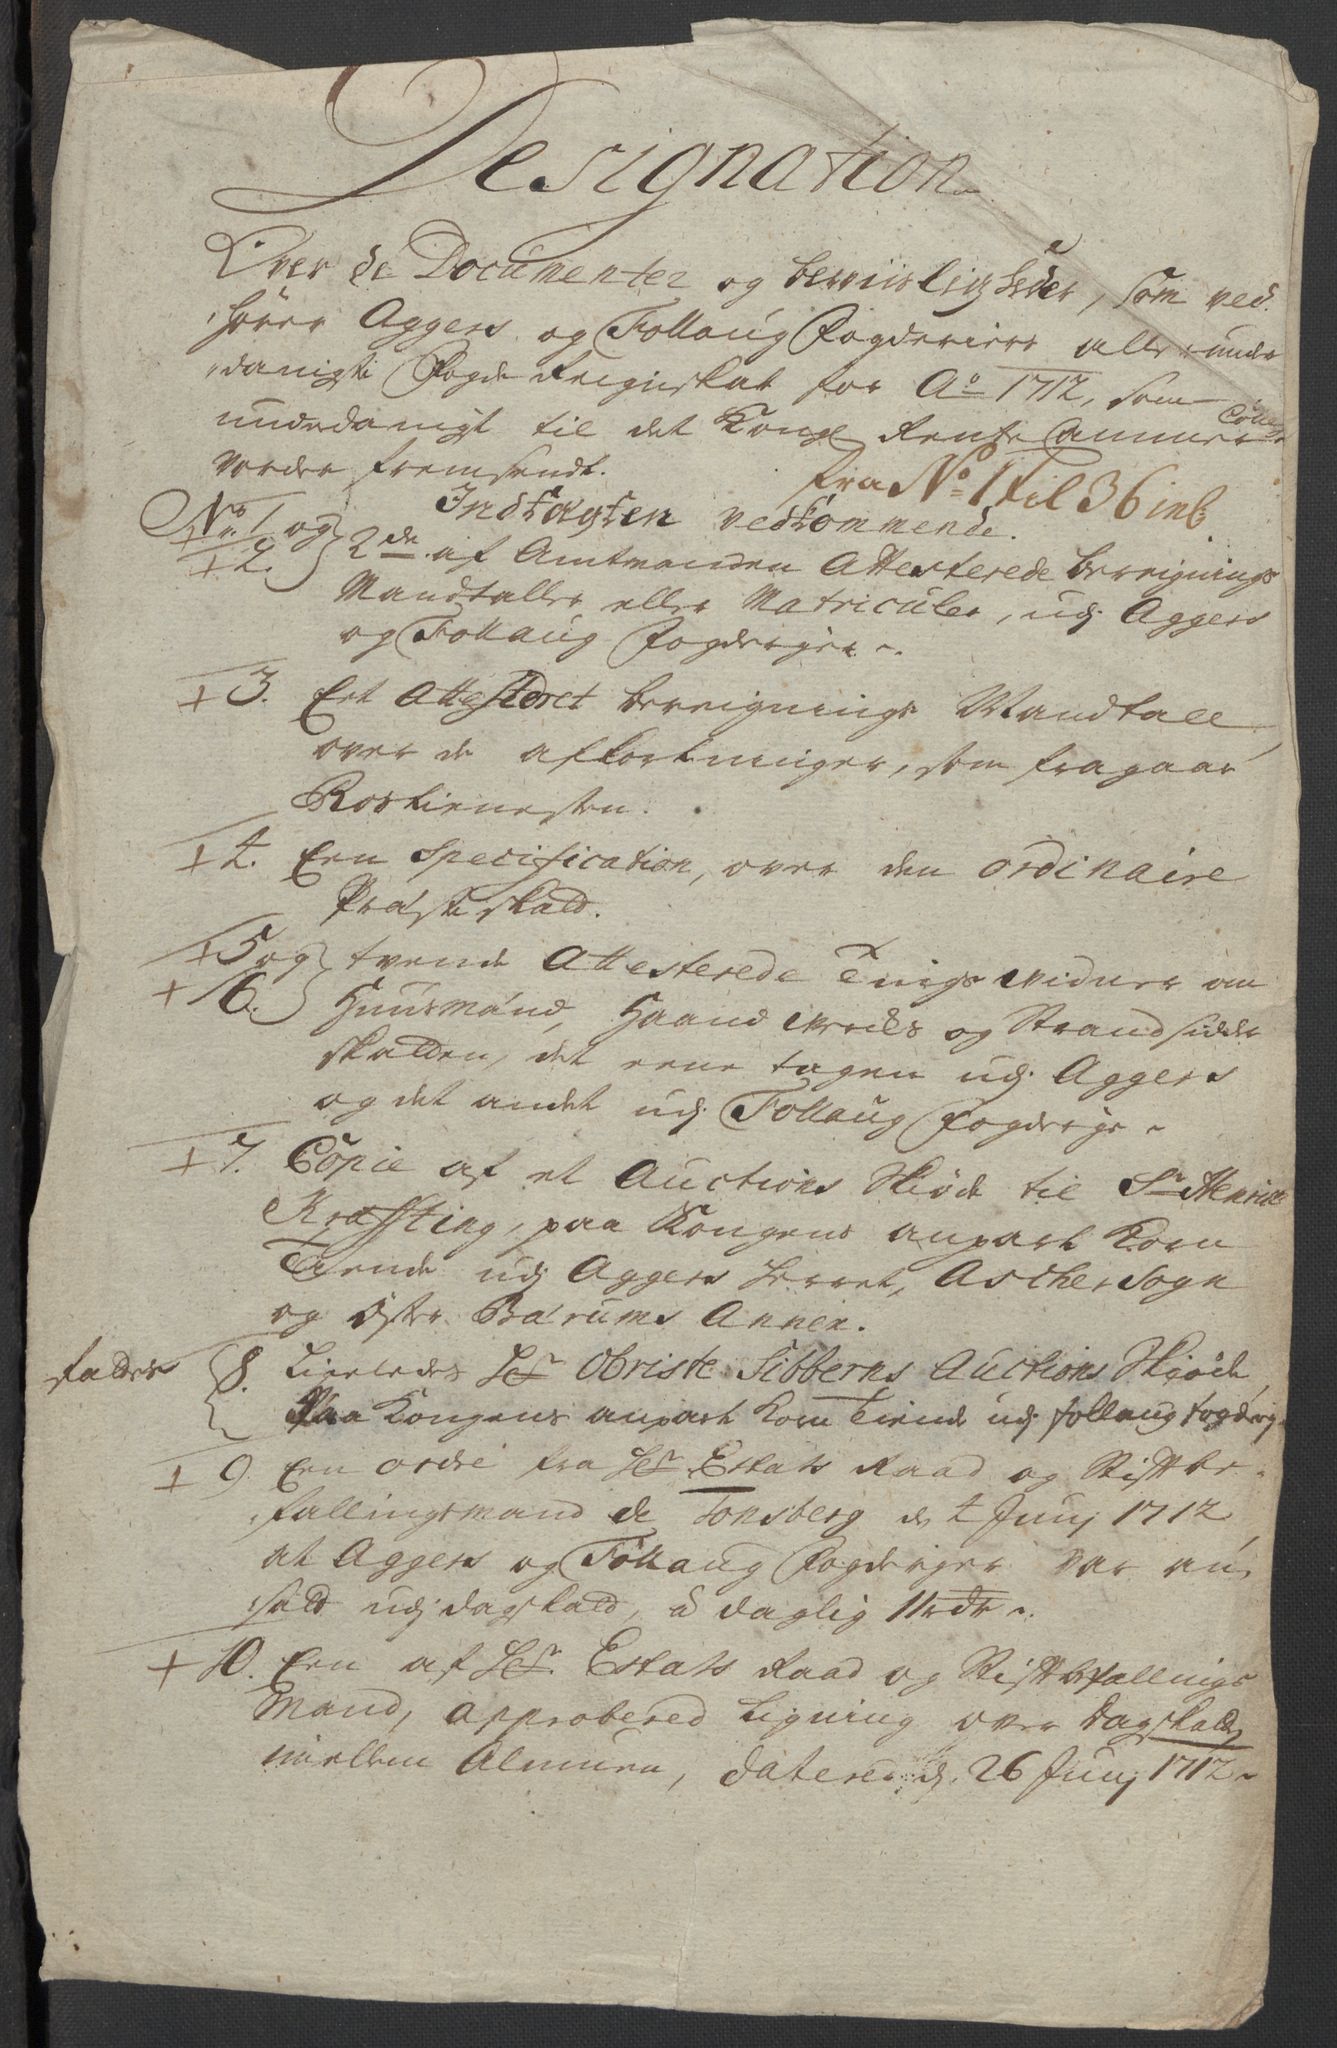 Designation
Over de Documenter og beviisligheder, som ved¬
hörer Aggers og Follaug Fogderiers aller unde
danigste Fogde Reignskab for Ao 1712, som
underdanigst til det Kongl Rente Cammer Colleg
vorder fremsendt.
fra No 1 til 36 incl
Indtägten vedkommende.
No 1 og
2. 2de af Amtmanden Attesterede bereignings
Mandtaller eller Matriculer, udj Aggers
og Follaug Fogderjer.
3. Eet Attesteret bereignings Mandtall
over de afkortninger, som fragaar
Rostienesten.
4. Een Specification, over den ordinaire
Princesse skatt.
5 og tvende Attesterede Tings vidner om
6. Huusmänd, Haandverks og Strandsidder
skatten, det eene tagen udj Aggers
og det andet udj Follaug Fogderje
7. Copie af et Auctions Skiöde til Sr Henrich
Kræfting, paa Kongens anpart Korn
Tiende udj Aggers Herret, Ascher Sogn
og öster Bærums Annex.
falder 8. Ligeledes Hr Obriste Sibberns Auctions Skiöde,
paa Kongens anpart Korn Tiende udj follaug fogderj
9 Een ordre fra Hr Estats Raad og Stiftbe¬
fallingsmand de Tonsberg de 4 Junj 1712
at Aggers og Follaug Fogderjer var an¬
satt udj dagskatt, á daglig 11 rdr
10. Een af Hr. Estats Raad og Stiftbefallings
Mand, approbered Ligning over dagskatt
mellem Almuen, dateret d. 26 Junj 1712